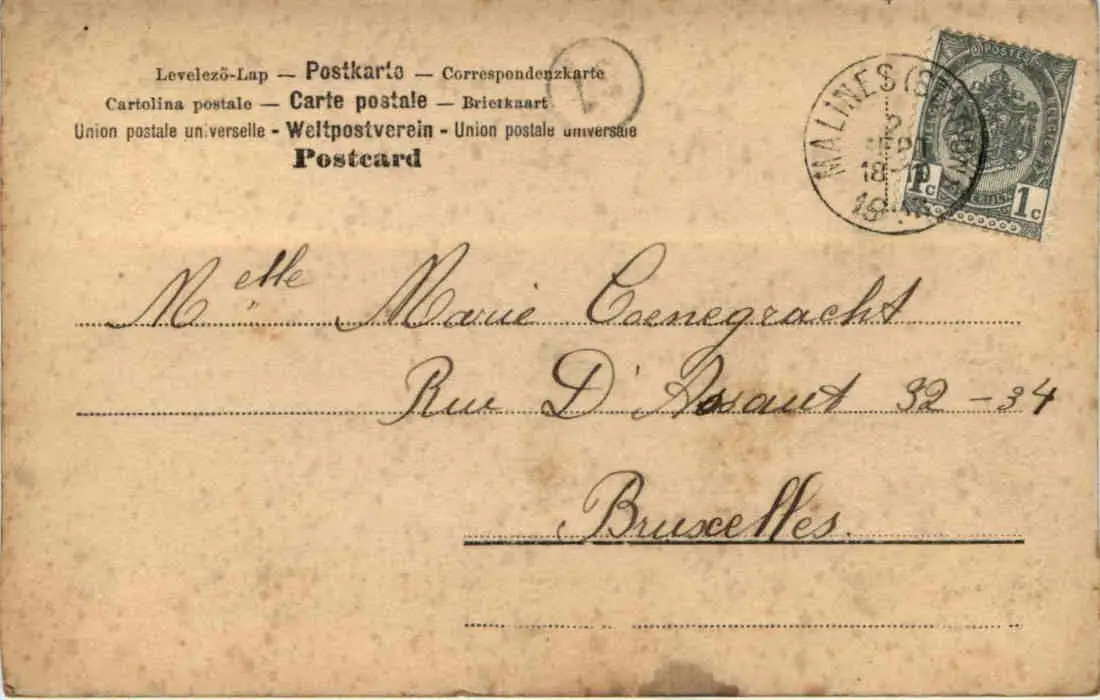 Levelező-Lap — Postkarte — Correspondenzkarte
Cartolina postale — Carte postale — Briefkaart
Union postale universelle - Weltpostverein - Union postale universale
Postcard
1
MALINES (STATION)
2
SEPT
18-19
19
1c 1c
Melle Marie Coenegracht
Rue D'Assaut 32-34
Bruxelles.